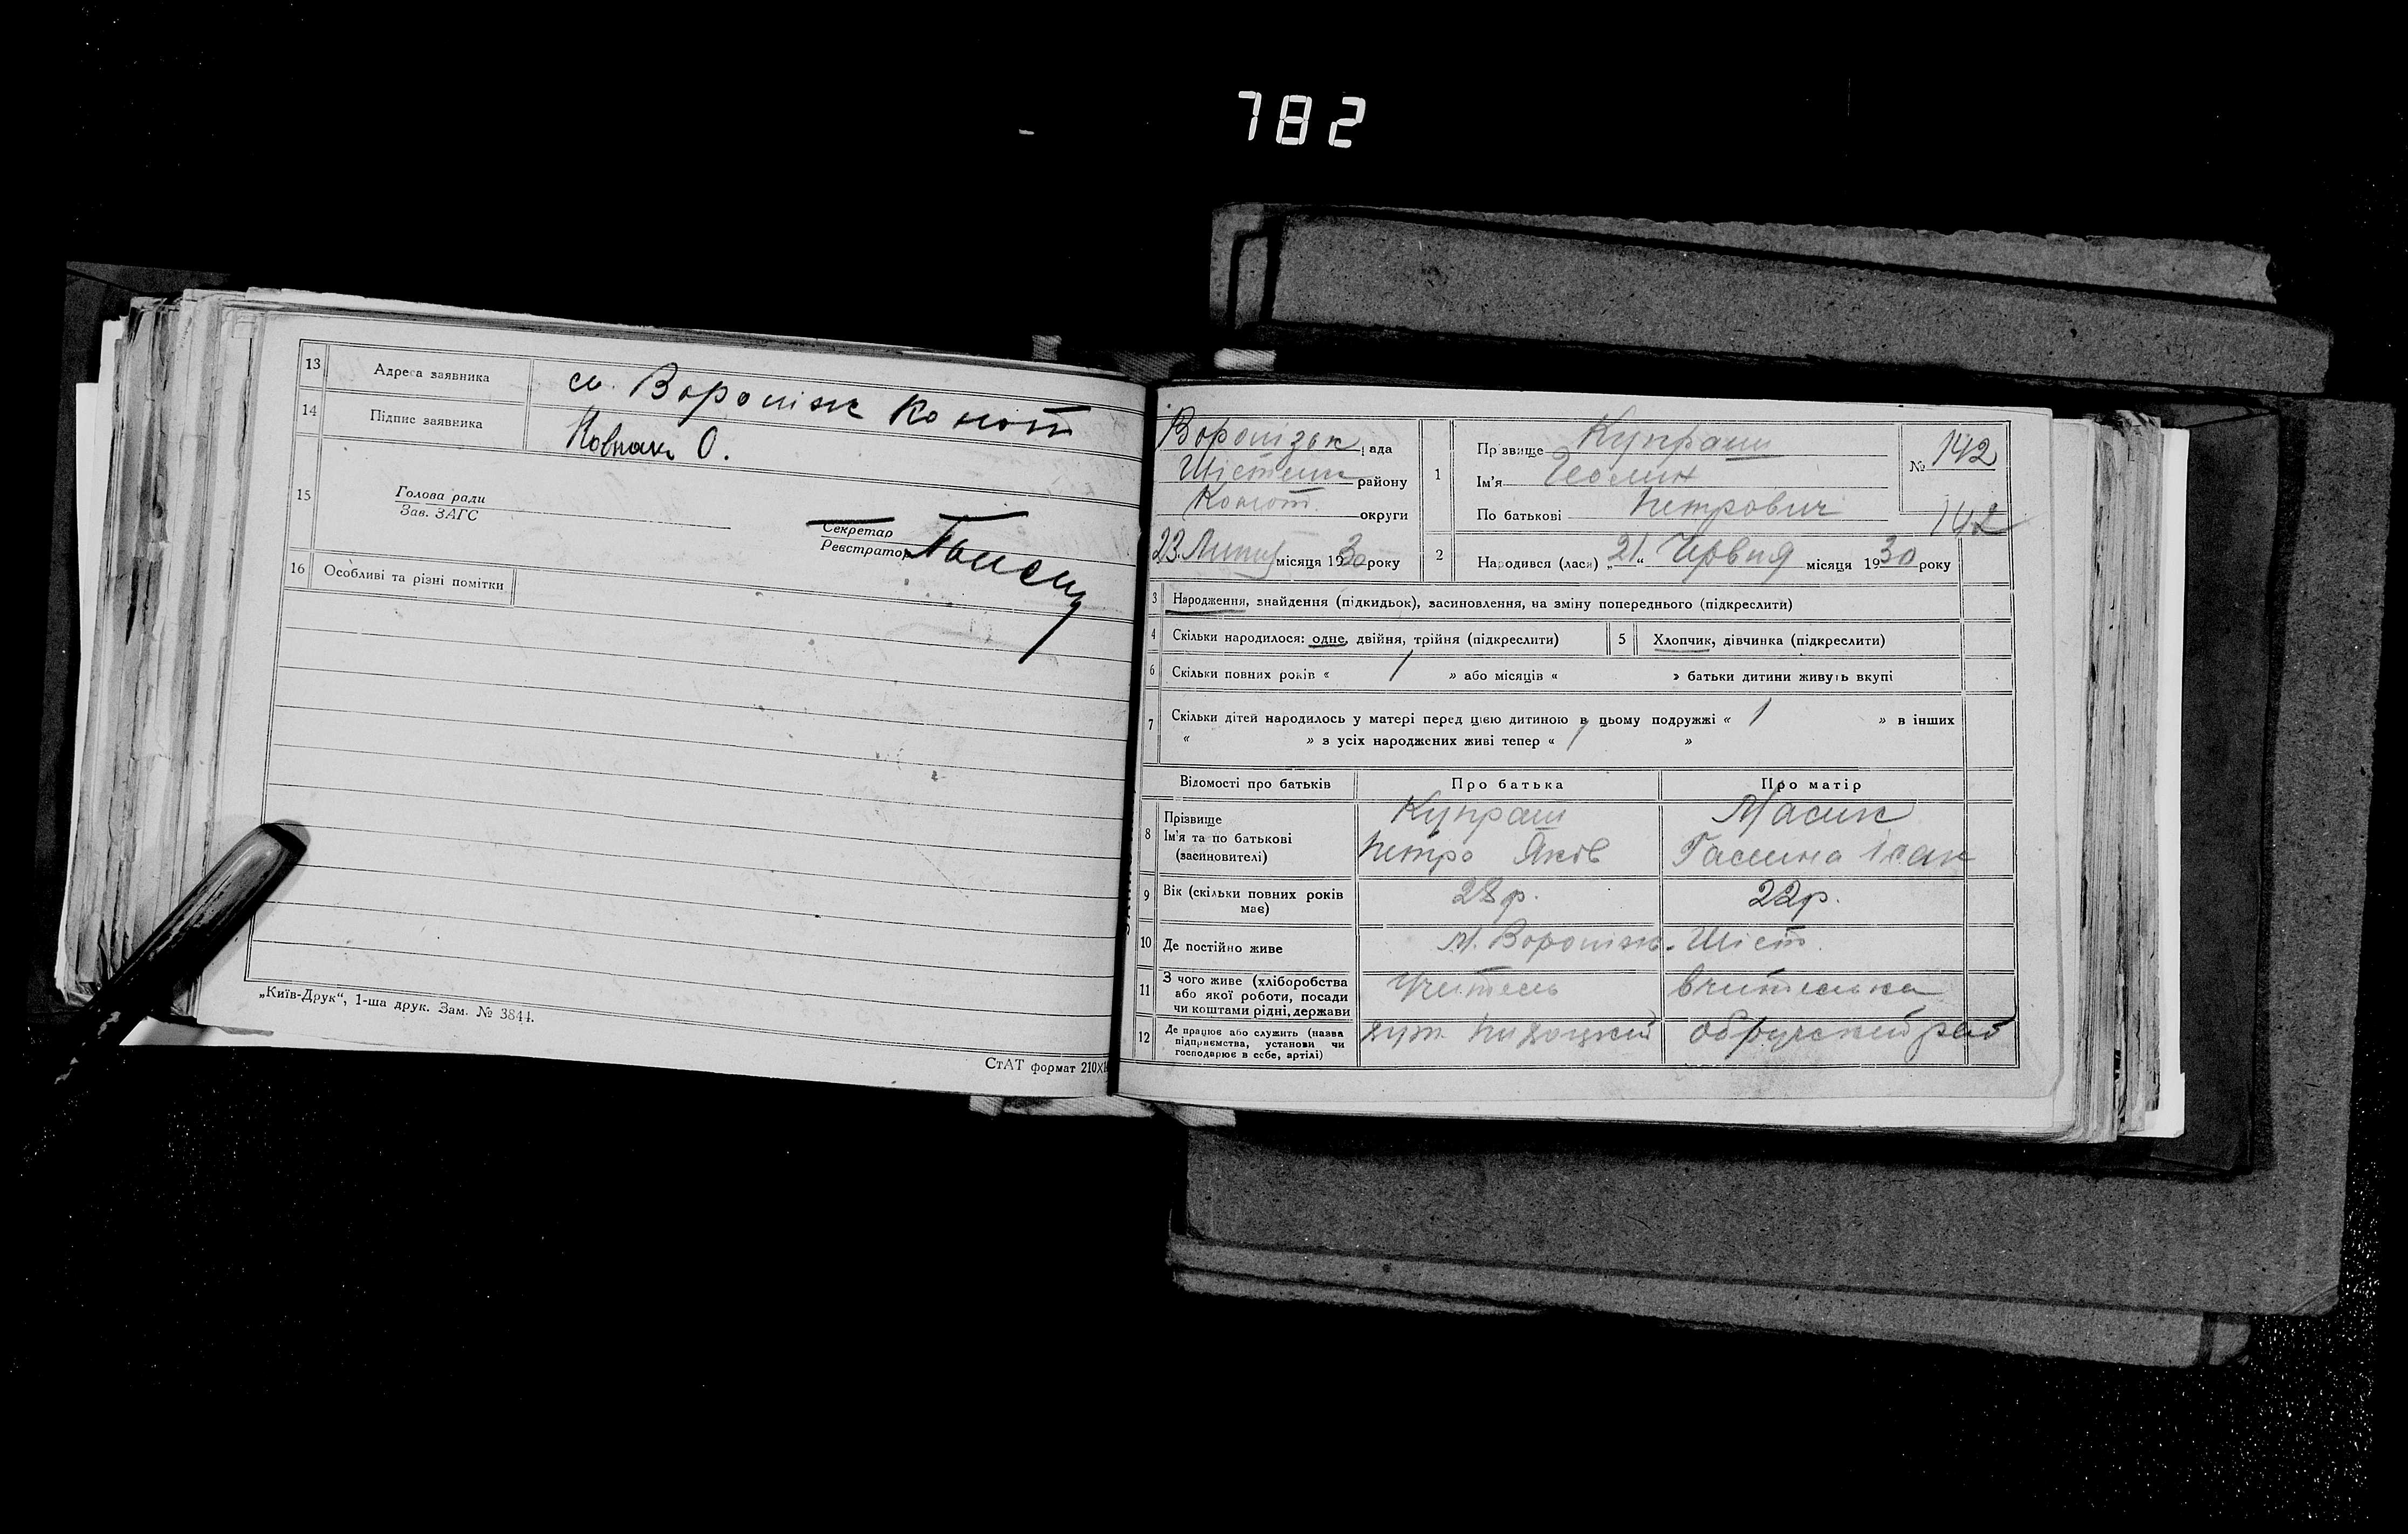 782
13 Адреса заявника см. Вороніж Конот
14 Підпис заявника О.
15 Голова ради
Зав. ЗАГС
Секретар
Реєстратор
16 Особливі та різні помітки
„Київ-Друк“, 1-ша друк. Зам. № 3844.
СтАТ формат 210X
Воронізьк рада
Шістенськ району
Конот. округи
23 Липня місяця 1930 року
1 Прізвище Купраш
Ім'я
По батькові Петрович
№ 142
142
2 Народився (лася) „21“ Червня місяця 1930 року
3 Народження, знайдення (підкидьок), засиновлення, на зміну попереднього (підкреслити)
4 Скільки народилося: одне, двійня, трійня (підкреслити) 5 Хлопчик, дівчинка (підкреслити)
6 Скільки повних років « 1 » або місяців « » батьки дитини живуть вкупі
7 Скільки дітей народилось у матері перед цією дитиною в цьому подружжі « 1 » в інших
« » з усіх народжених живі тепер « 1 »
Відомості про батьків Про батька Про матір
8 Прізвище Купраш Масик
Ім'я та по батькові Петро Яків Галина Ісак
(засиновителі)
9 Вік (скільки повних років має) 28 р. 22 р.
10 Де постійно живе м. Вороніж. Шіст.
11 З чого живе (хліборобства або якої роботи, посади чи коштами рідні, держави Учитель вчителька
12 Де працює або служить (назва підприємства, установи чи господарює в себе, артілі) хут.